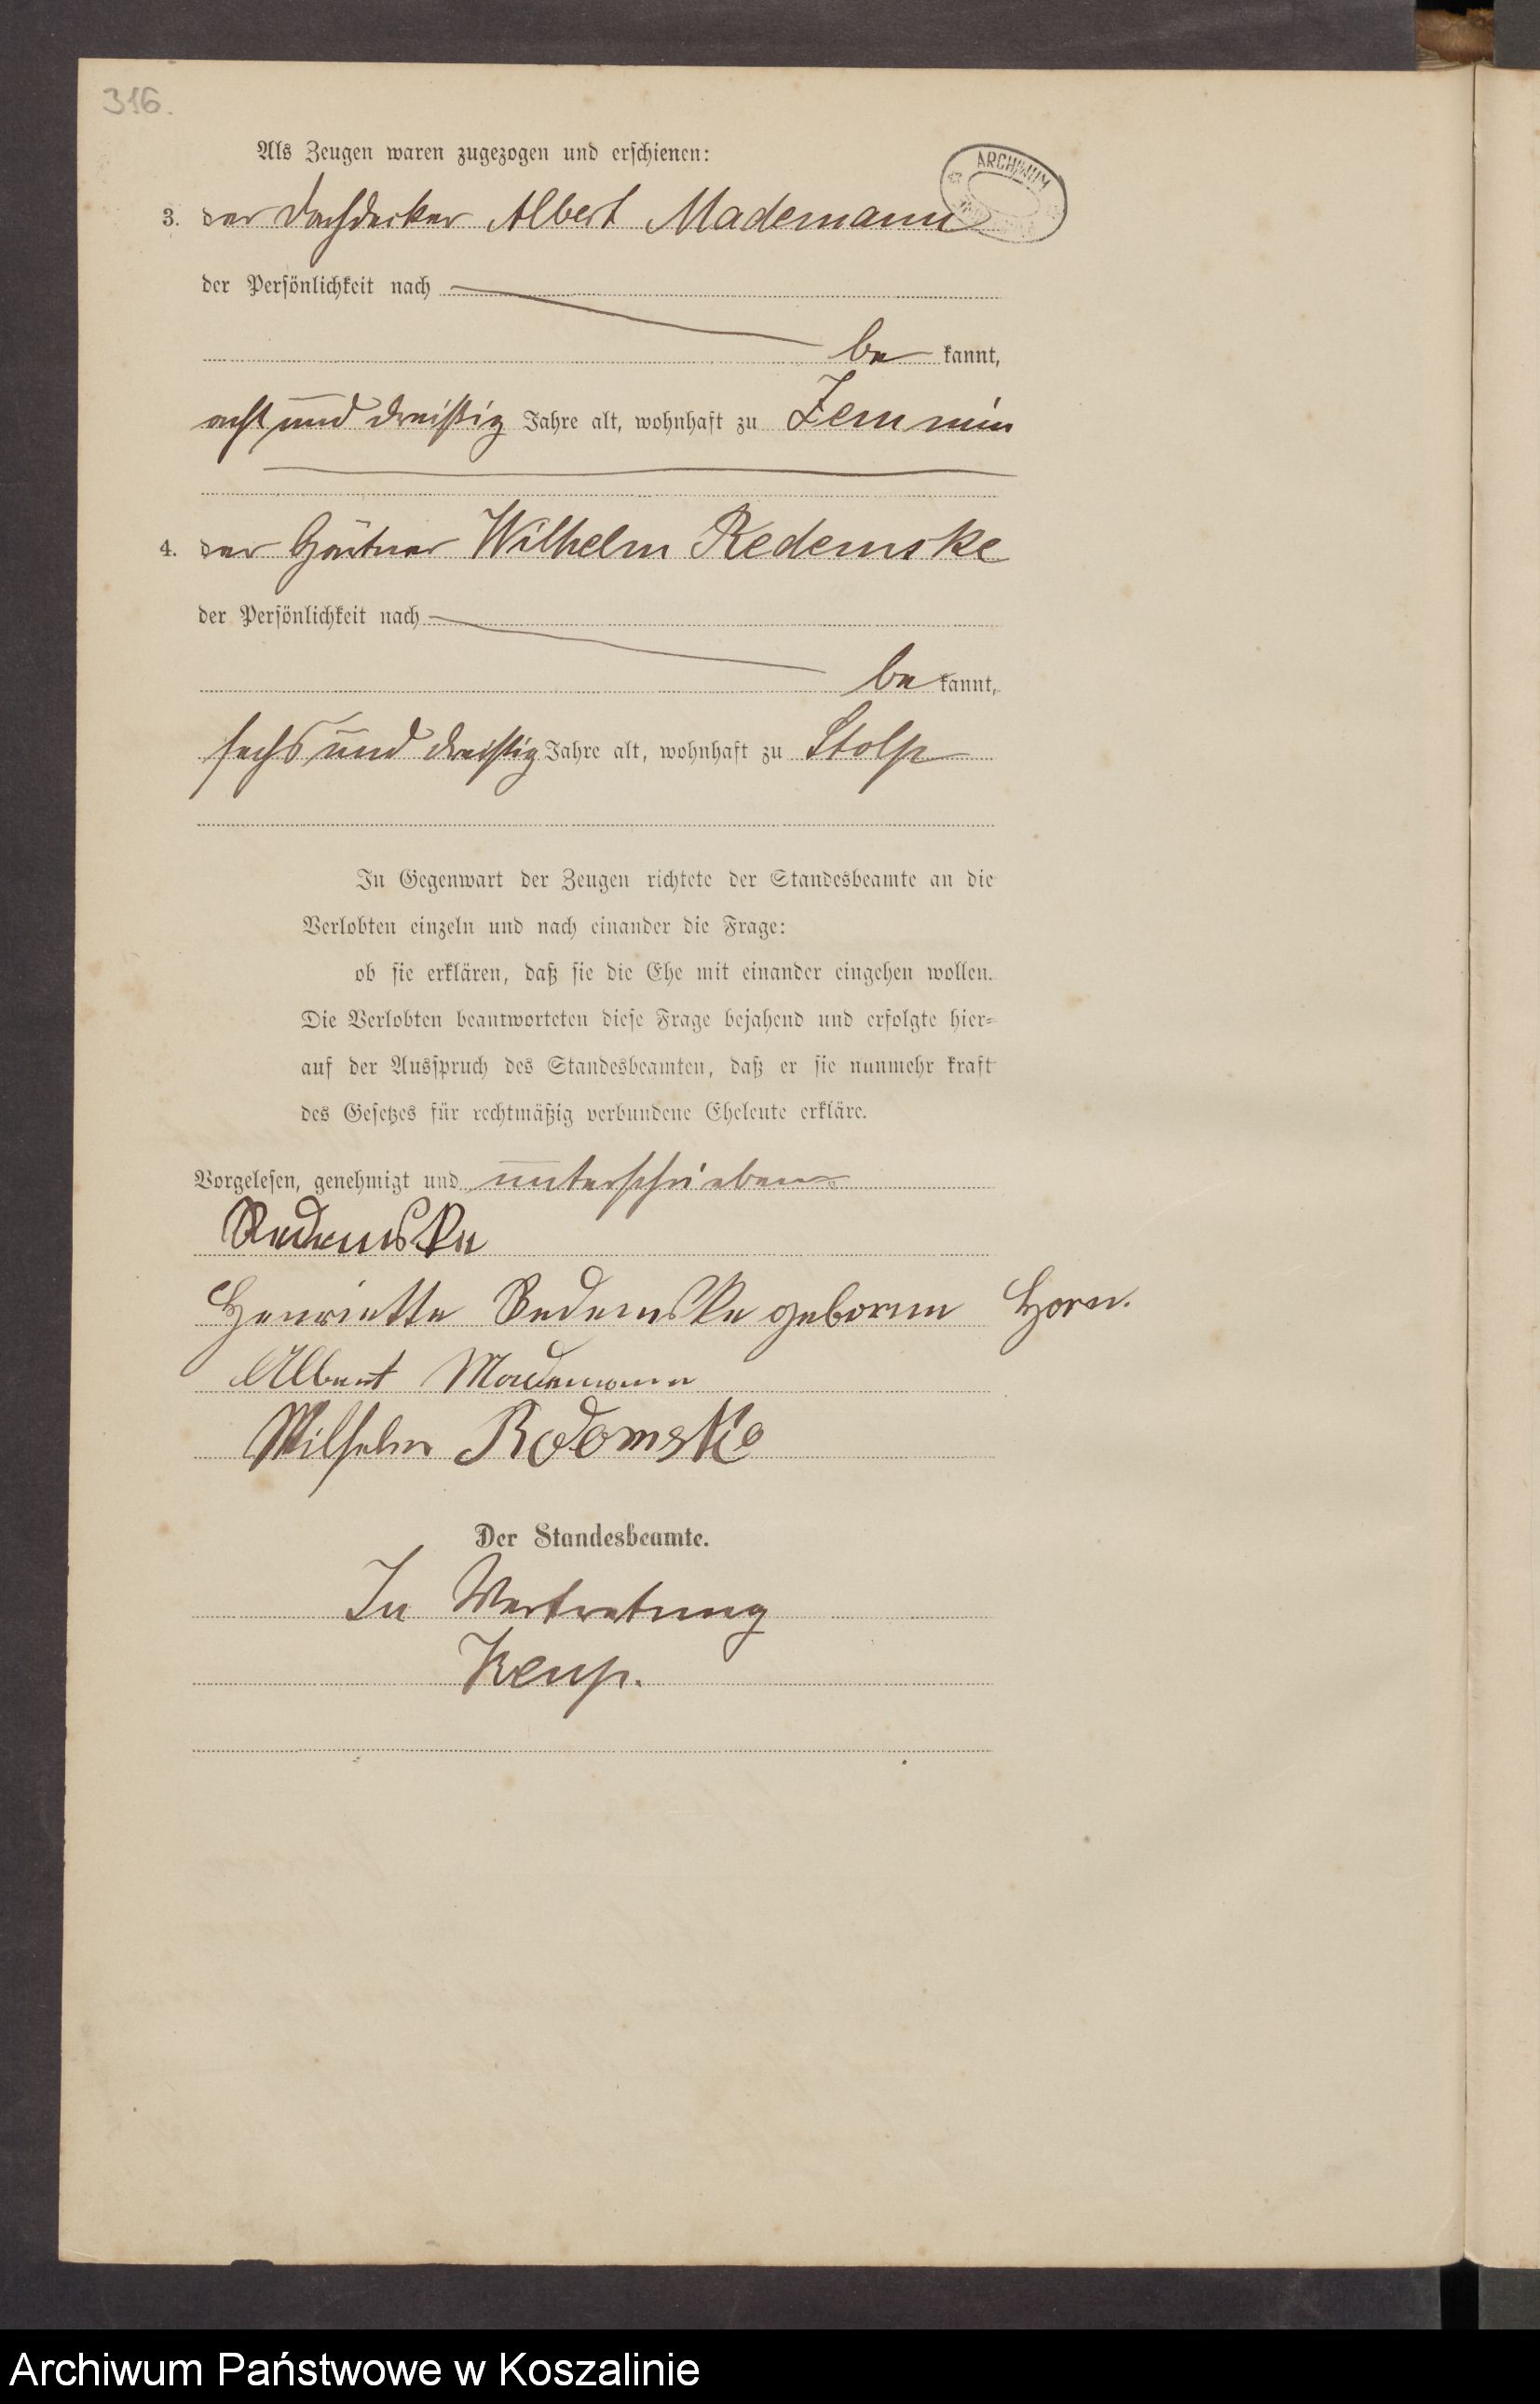 316.
Als Zeugen waren zugezogen und erschienen:
ARCHIWUM
3. der Dachdecker Albert Mademann
der Persönlichkeit nach
be kannt,
acht und dreißig Jahre alt, wohnhaft zu Zemmin
4. der Gärtner Wilhelm Redemske
der Persönlichkeit nach
be kannt,
sechs und dreißig Jahre alt, wohnhaft zu Stolp
In Gegenwart der Zeugen richtete der Standesbeamte an die
Verlobten einzeln und nach einander die Frage:
ob sie erklären, daß sie die Ehe mit einander eingehen wollen.
Die Verlobten beantworteten diese Frage bejahend und erfolgte hier-
auf der Ausspruch des Standesbeamten, daß er sie nunmehr kraft
des Gesetzes für rechtmäßig verbundene Eheleute erkläre.
Vorgelesen, genehmigt und unterschrieben.
Redemske
Henriette Redemske geboren Horn.
Albert Mademann
Wilhelm Redemske
Der Standesbeamte.
In Vertretung
Kemp.
Archiwum Państwowe w Koszalinie